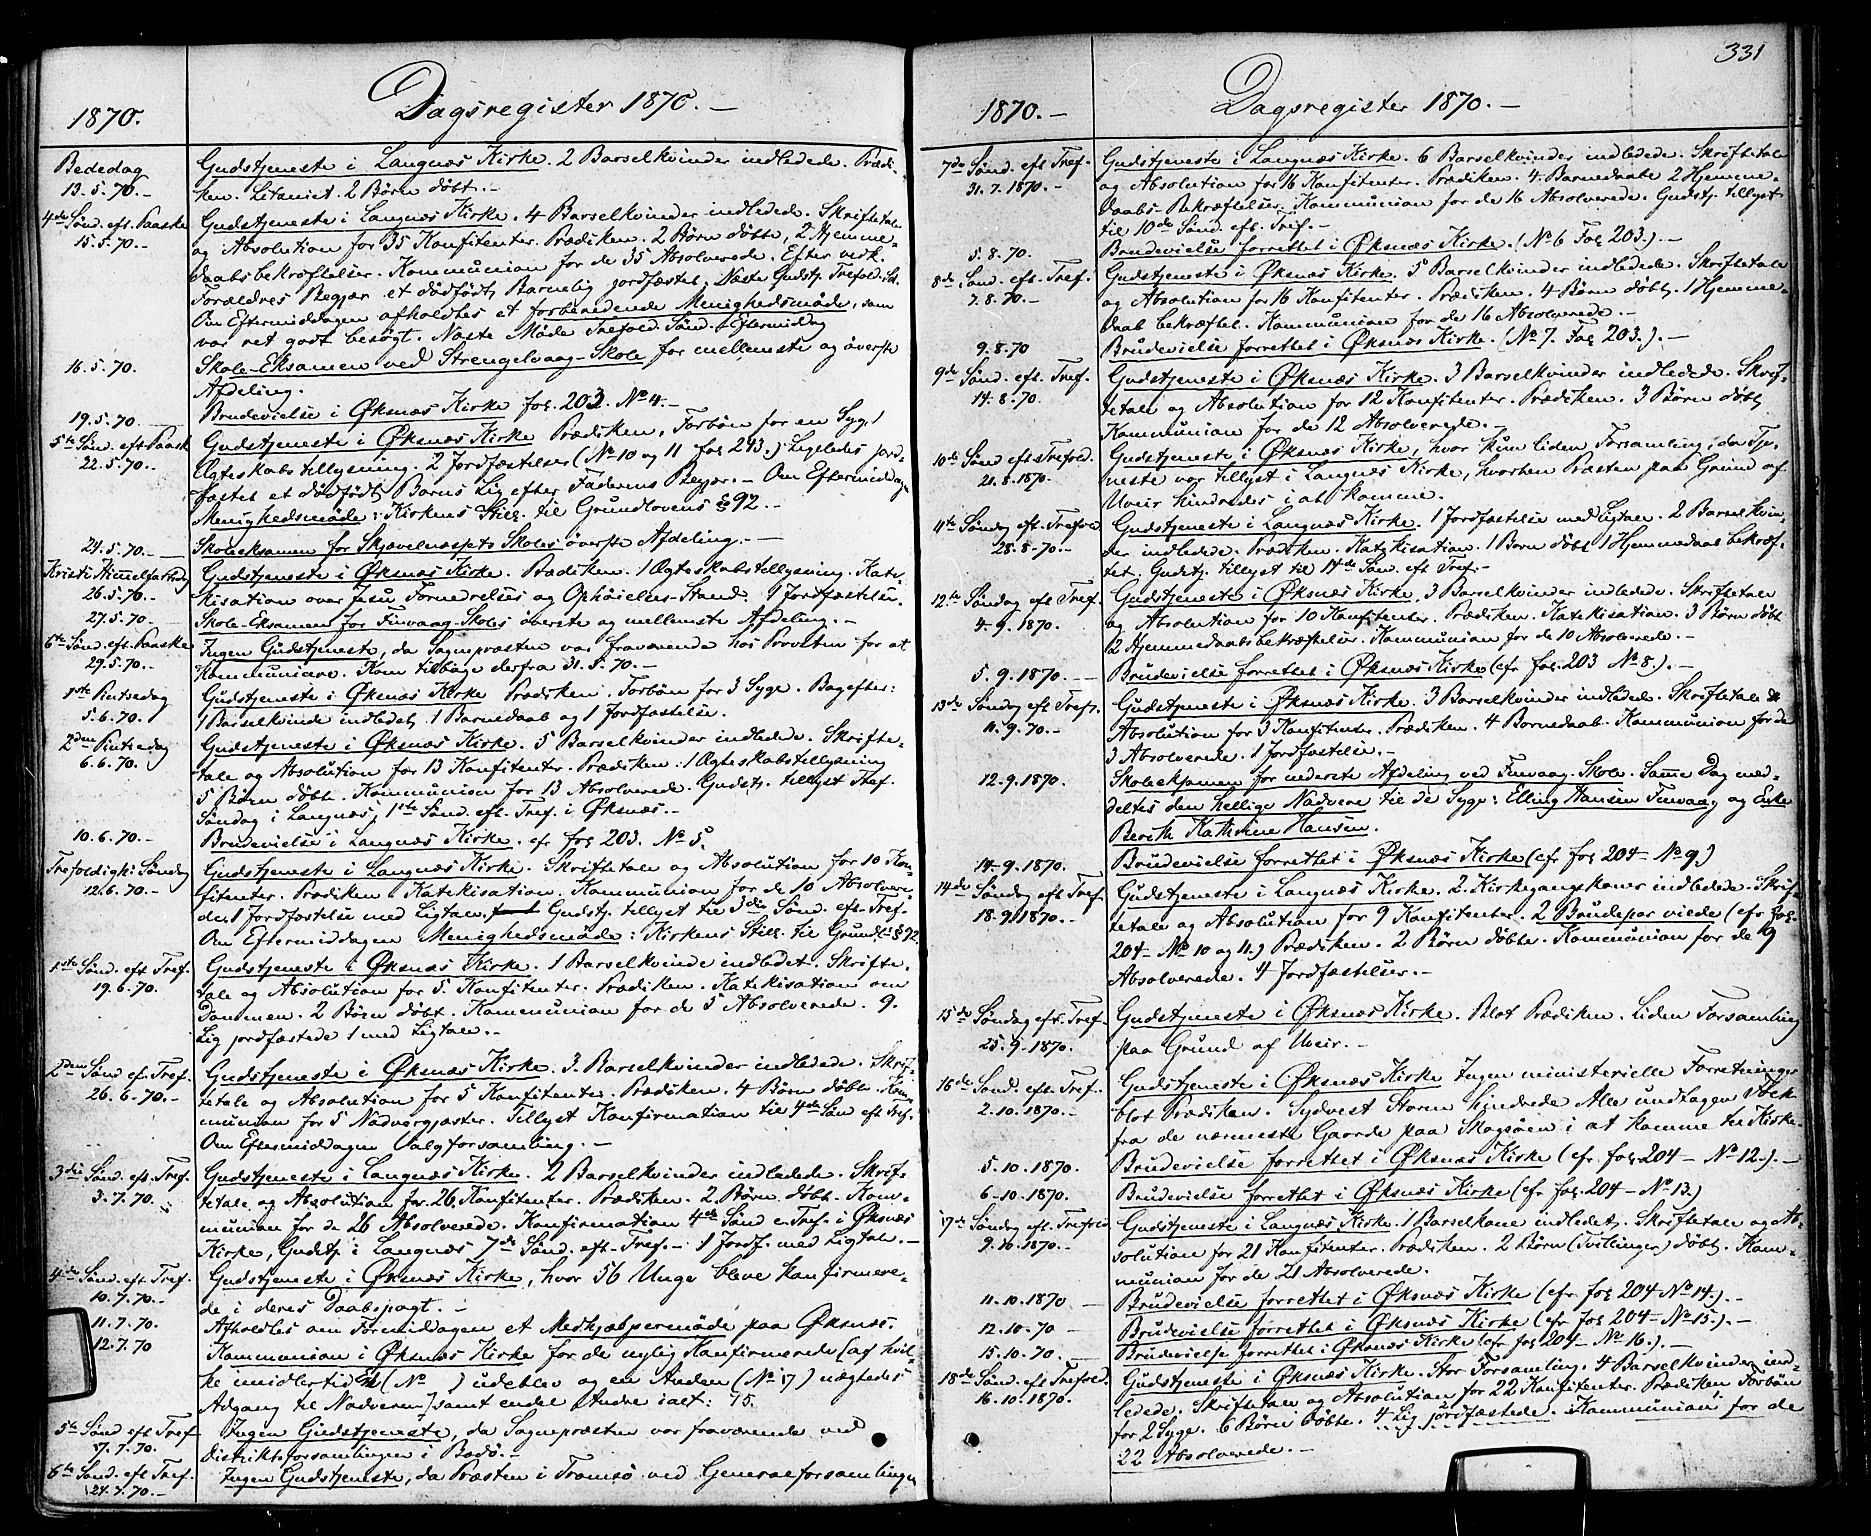 1870.
Dagsregister 1870. —
Bededag
13.5.70. —
Gudstjeneste i Langnæs Kirke. 2 Barselkvinder indledede. Prædi-
ken. Litaniet. 2 Børn døbt. —
4de Sønd. eft. Paaske
15.5.70. —
Gudstjeneste i Langnæs Kirke. 4 Barselkvinder indledede. Skriftetale
og Absolution for 35 Konfitenter. Prædiken. 2 Børn døbte, 2 Hjemme-
daabsbekræftelser. Kommunion for de 35 Absolverede. Efter
Forældres Begjær et dødfødt Barnelig jordfæstet. Næste Gudstj. Trefold. Sø.
Om Eftermiddagen afholdtes et forberedende Menighedsmøde, som
var ret godt besøgt. Næste Møde Trefold. Sønd. Eftermiddag
16.5.70.
Skole-Eksamen ved Strengelvaag-Skole for mellemste og øverste
Afdeling.
19.5.70. —
Brudevielse i Øksnæs Kirke fol. 203. No 4. —
5te Sønd. eft. Paask
22.5.70. —
Gudstjeneste i Øksnæs Kirke Prædiken, Forbøn for en Syg, 1
Ægteskabstillysning. 2 Jordfæstelser (No 10 og 11 fol. 243.) Ligeledes jord-
fæstet et dødfødt Barns Lig efter Faderens Begjær. — Om Eftermiddag.
Menighedsmøde: Kirkens Still. til Grundlovens § 92. —
24.5.70. —
Skoleeksamen for Skjævelnæssets Skoles øverste Afdeling. —
Kristi Himmelfartsdag
26.5.70. —
Gudstjeneste i Øksnæs Kirke. Prædiken. 1 Ægteskabstillysning. Kate-
kisation over Jesu Fornedrelses og Ophøielses-Stand. 1 Jordfæstelse.
27.5.70. —
Skole-Eksamen for Finvaag-Skoles øverste og mellemste Afdeling. —
6te Sønd. eft. Paaske
29.5.70. —
Ingen Gudstjeneste, da Sognepræsten var fraværende hos Provsten for at
kommunicere. Kom tilbage derfra 31.5.70. —
1ste Pintsedag
5.6.70. —
Gudstjeneste i Øksnæs Kirke Prædiken. Forbøn for 3 Syge. Bagefter:
1 Barselkvinde indledet, 1 Barnedaab og 1 Jordfæstelse.
2den Pintsedag
6.6.70. —
Gudstjeneste i Øksnæs Kirke. 5 Barselkvinder indledede. Skrifte-
tale og Absolution for 13 Konfitenter. Prædiken. 1 Ægteskabstillysning
5 Børn døbte. Kommunion for 13 Absolverede. Gudstj. tillyst Tref.
Søndag i Langnæs, 1ste Sønd. eft. Tref. i Øksnæs. —
10.6.70. —
Brudevielse i Langnæs Kirke. cfr fol. 203. No 5.
Trefoldighs Søndag
12.6.70. —
Gudstjeneste i Langnæs Kirke. Skriftetale og Absolution for 10 Kon-
fitenter. Prædiken. Katekisation. Kommunion for de 10 Absolvere-
de, 1 Jordfæstelse med Ligtale. Gudstj. tillyst til 3die Sønd. eft. Tref.
Om Eftermiddagen Menighedsmøde: Kirkens Still. til Grundl. § 92.
1ste Sønd. eft Tref.
19.6.70.
Gudstjeneste i Øksnæs Kirke. 1 Barselkvinde indledet. Skrifte-
tale og Absolution for 5 Konfitenter. Prædiken. Katekisation om
Dommen. 2 Børn døbt. Kommunion for de 5 Absolverede. 9.
Lig jordfæstede 1 med Ligtale. —
2den Sønd. ef. Tref.
26.6.70. —
Gudstjeneste i Øksnæs Kirke. 3 Barselkvinder indledede. Skrif-
tetale og Absolution for 5 Konfitenter. Prædiken. 4 Børn døbte. Kom-
munion for 5 Nadvergjæster. Tillyst Konfirmation til 4de Søn eft Tref.
Om Eftermiddagen Valgforsamling. —
3die Sønd. eft. Tref.
3.7.70.
Gudstjeneste i Langnæs Kirke. 2 Barselkvinder indledede. Skrif-
tetale og Absolution for 26 Konfitenter. Prædiken. 2 Børn døbt. Kom-
munion for de 26 Absolverede. Konfirmation 4de Sønd e. Tref. i Øksnæs
Kirke, Gudstj. i Langnæs 7de Sønd. eft. Tref. — 1 Jordf. med Ligtale. —
4de Sønd. eft. Tref.
10.7.70. —
Gudstjeneste i Øksnæs Kirke, hvor 56 Unge bleve konfirmere-
de i deres Daabspagt. —
11.7.70.
Afholdtes om Formiddagen et Medhjælpermøde paa Øksnæs.
12.7.70
Kommunion i Øksnæs Kirke for de nylig Konfirmerede (af hvil-
ke imidlertid (No ) udeblev og en Anden (No 17) nægtedes
Adgang til Nadveren), samt endel Andre ialt: 75.
5te Sønd eft Tref
17.7.70.
Ingen Gudstjeneste, da Sognepræsten var fraværende ved
Distriktsforsamlingen i Bodø. —
6te Sønd. eft Tref.
24.7.70. —
Ingen Gudstjeneste, da Præsten i Tromsø ved Generalforsamlingen
331
1870. —
Dagsregister 1870. —
7de Sønd. eft Tref.
31.7.1870. —
Gudstjeneste i Langnæs Kirke. 6 Barselkvinder indledede. Skriftetale
og Absolution for 16 Konfitenter. Prædiken. 4 Barnedaabe 2 Hjemme-
daabs-Bekræftelser. Kommunion for de 16 Absolverede. Gudstj. tillyst
til 10de Sønd. eft. Tref. —
5.8.70.
Brudevielse forrettet i Øksnæs Kirke. (No 6 Fol 203.). —
8de Sønd. eft. Tref.
7.8.70. —
Gudstjeneste i Øksnæs Kirke. 5 Barselkvinder indledede. Skriftetale
og Absolution for 16 Konfitenter. Prædiken. 4 Børn døbt, 1 Hjemme-
daab bekræftet. Kommunion for de 16 Absolverede. —
9.8.70
Brudevielse forrettet i Øksnæs Kirke. (No 7. Fol 203.). —
9de Sønd. eft. Tref.
14.8.70.
Gudstjeneste i Øksnæs Kirke. 3 Barselkvinder indledede. Skrif-
tetale og Absolution for 12 Konfitenter. Prædiken. 3 Børn døbt,
Kommunion for de 12 Absolverede. —
10de Sønd eft Trefold.
21.8.1870.
Gudstjeneste i Øksnæs Kirke, hvor kun liden Forsamling, da Tje-
neste var tillyst i Langnæs Kirke, hvorhen Præsten paa Grund af
Uveir hindredes i at komme.
11te Søndag eft. Trefold
28.8.70. —
Gudstjeneste i Langnæs Kirke. 1 Jordfæstelse med Ligtale. 2 Barselkvin-
der indledede. Prædiken. Katekisation. 1 Barn døbt 1 Hjemmedaab bekræf-
tet. Gudstj. tillyst til 14de Sønd. eft Tref. —
12te Søndag eft Tref.
4.9.1870.
Gudstjeneste i Øksnæs Kirke, 3 Barselkvinder indledede. Skriftetale
og Absolution for 10 Konfitenter. Prædiken. Katekisation. 3 Børn døbt
2 Hjemmedaabsbekræftelser. Kommunion for de 10 Absolverede. —
5.9.1870. —
Brudevielse forrettet i Øksnæs Kirke (cfr fol. 203 No 8.). —
13de Søndag eft Tref.
11.9.70. —
Gudstjeneste i Øksnæs Kirke. 3 Barselkvinder indledede. Skriftetale &
Absolution for 3 Konfitenter. Prædiken. 4 Barnedaab. Kommunion for de
3 Absolverede. 1 Jordfæstelse. —
12.9.1870.
Skoleeksamen for nederste Afdeling ved Finvaag-Skole. Samme Dag med-
deltes den hellige Nadvere til de Syge: Elling Hansen Finvaag og Enke
Bereth Kathrine Hansen.
14.9.1870.
Brudevielse forrettet i Øksnæs Kirke (cfr fol 204 — No 9.)
14de Søndag eft Tref.
18.9.1870. —
Gudstjeneste i Langnæs Kirke. 2. Kirkegangskoner indledede. Skrif-
tetale og Absolution for 9 Konfitenter. 2 Brudepar viede (cfr fol.
204 — No 10 og 11.) Prædiken. 2 Børn døbte. Kommunion for de 9
Absolverede. 4 Jordfæstelser. —
15de Søndag eft. Tref.
25.9.1870.
Gudstjeneste i Øksnæs Kirke. Blot Prædiken. Liden Forsamling
paa Grund af Uveir. —
16de Sønd. eft. Tref.
2.10.1870. —
Gudstjeneste i Øksnæs Kirke Ingen ministerielle Forretninger
blot Prædiken. Sydvest Storm hindrede Alle undtagen Folk
fra de nærmeste Gaarde paa Skogsøen i at komme til Kirke.
5.10.1870.
Brudevielse forrettet i Øksnæs Kirke (cfr fol 204 — No 12.). —
6.10.1870.
Brudevielse forrettet i Øksnæs Kirke (cfr fol 204 — No 13.)
17de Søndag eft. Trefold
9.10.1870. —
Gudstjeneste i Langnæs Kirke. 1 Barselkone indledet. Skriftetale og Ab-
solution for 21 Konfitenter. Prædiken. 2 Børn (Tvillinger) døbt. Kom-
munion for de 21 Absolverede.
11.10.1870 —
Brudevielse forrettet i Øksnæs Kirke (cfr fol 204 No 14.). —
12.10.70 —
Brudevielse forrettet i Øksnæs Kirke (cfr fol 204 — No 15.). —
15.10.70. —
Brudevielse forrettet i Øksnæs Kirke (cfr fol 204 — No 16.). —
18de Sønd. eft Trefold.
16.10.1870.
Gudstjeneste i Øksnæs Kirke. Stor Forsamling. 4 Barselkvinder ind-
ledede. Skriftetale og Absolution for 22 Konfitenter. Prædiken Forbøn
for 2 Syge. 6 Børn døbte. 4 Lig jordfæstede. Kommunion for de
22 Absolverede. —